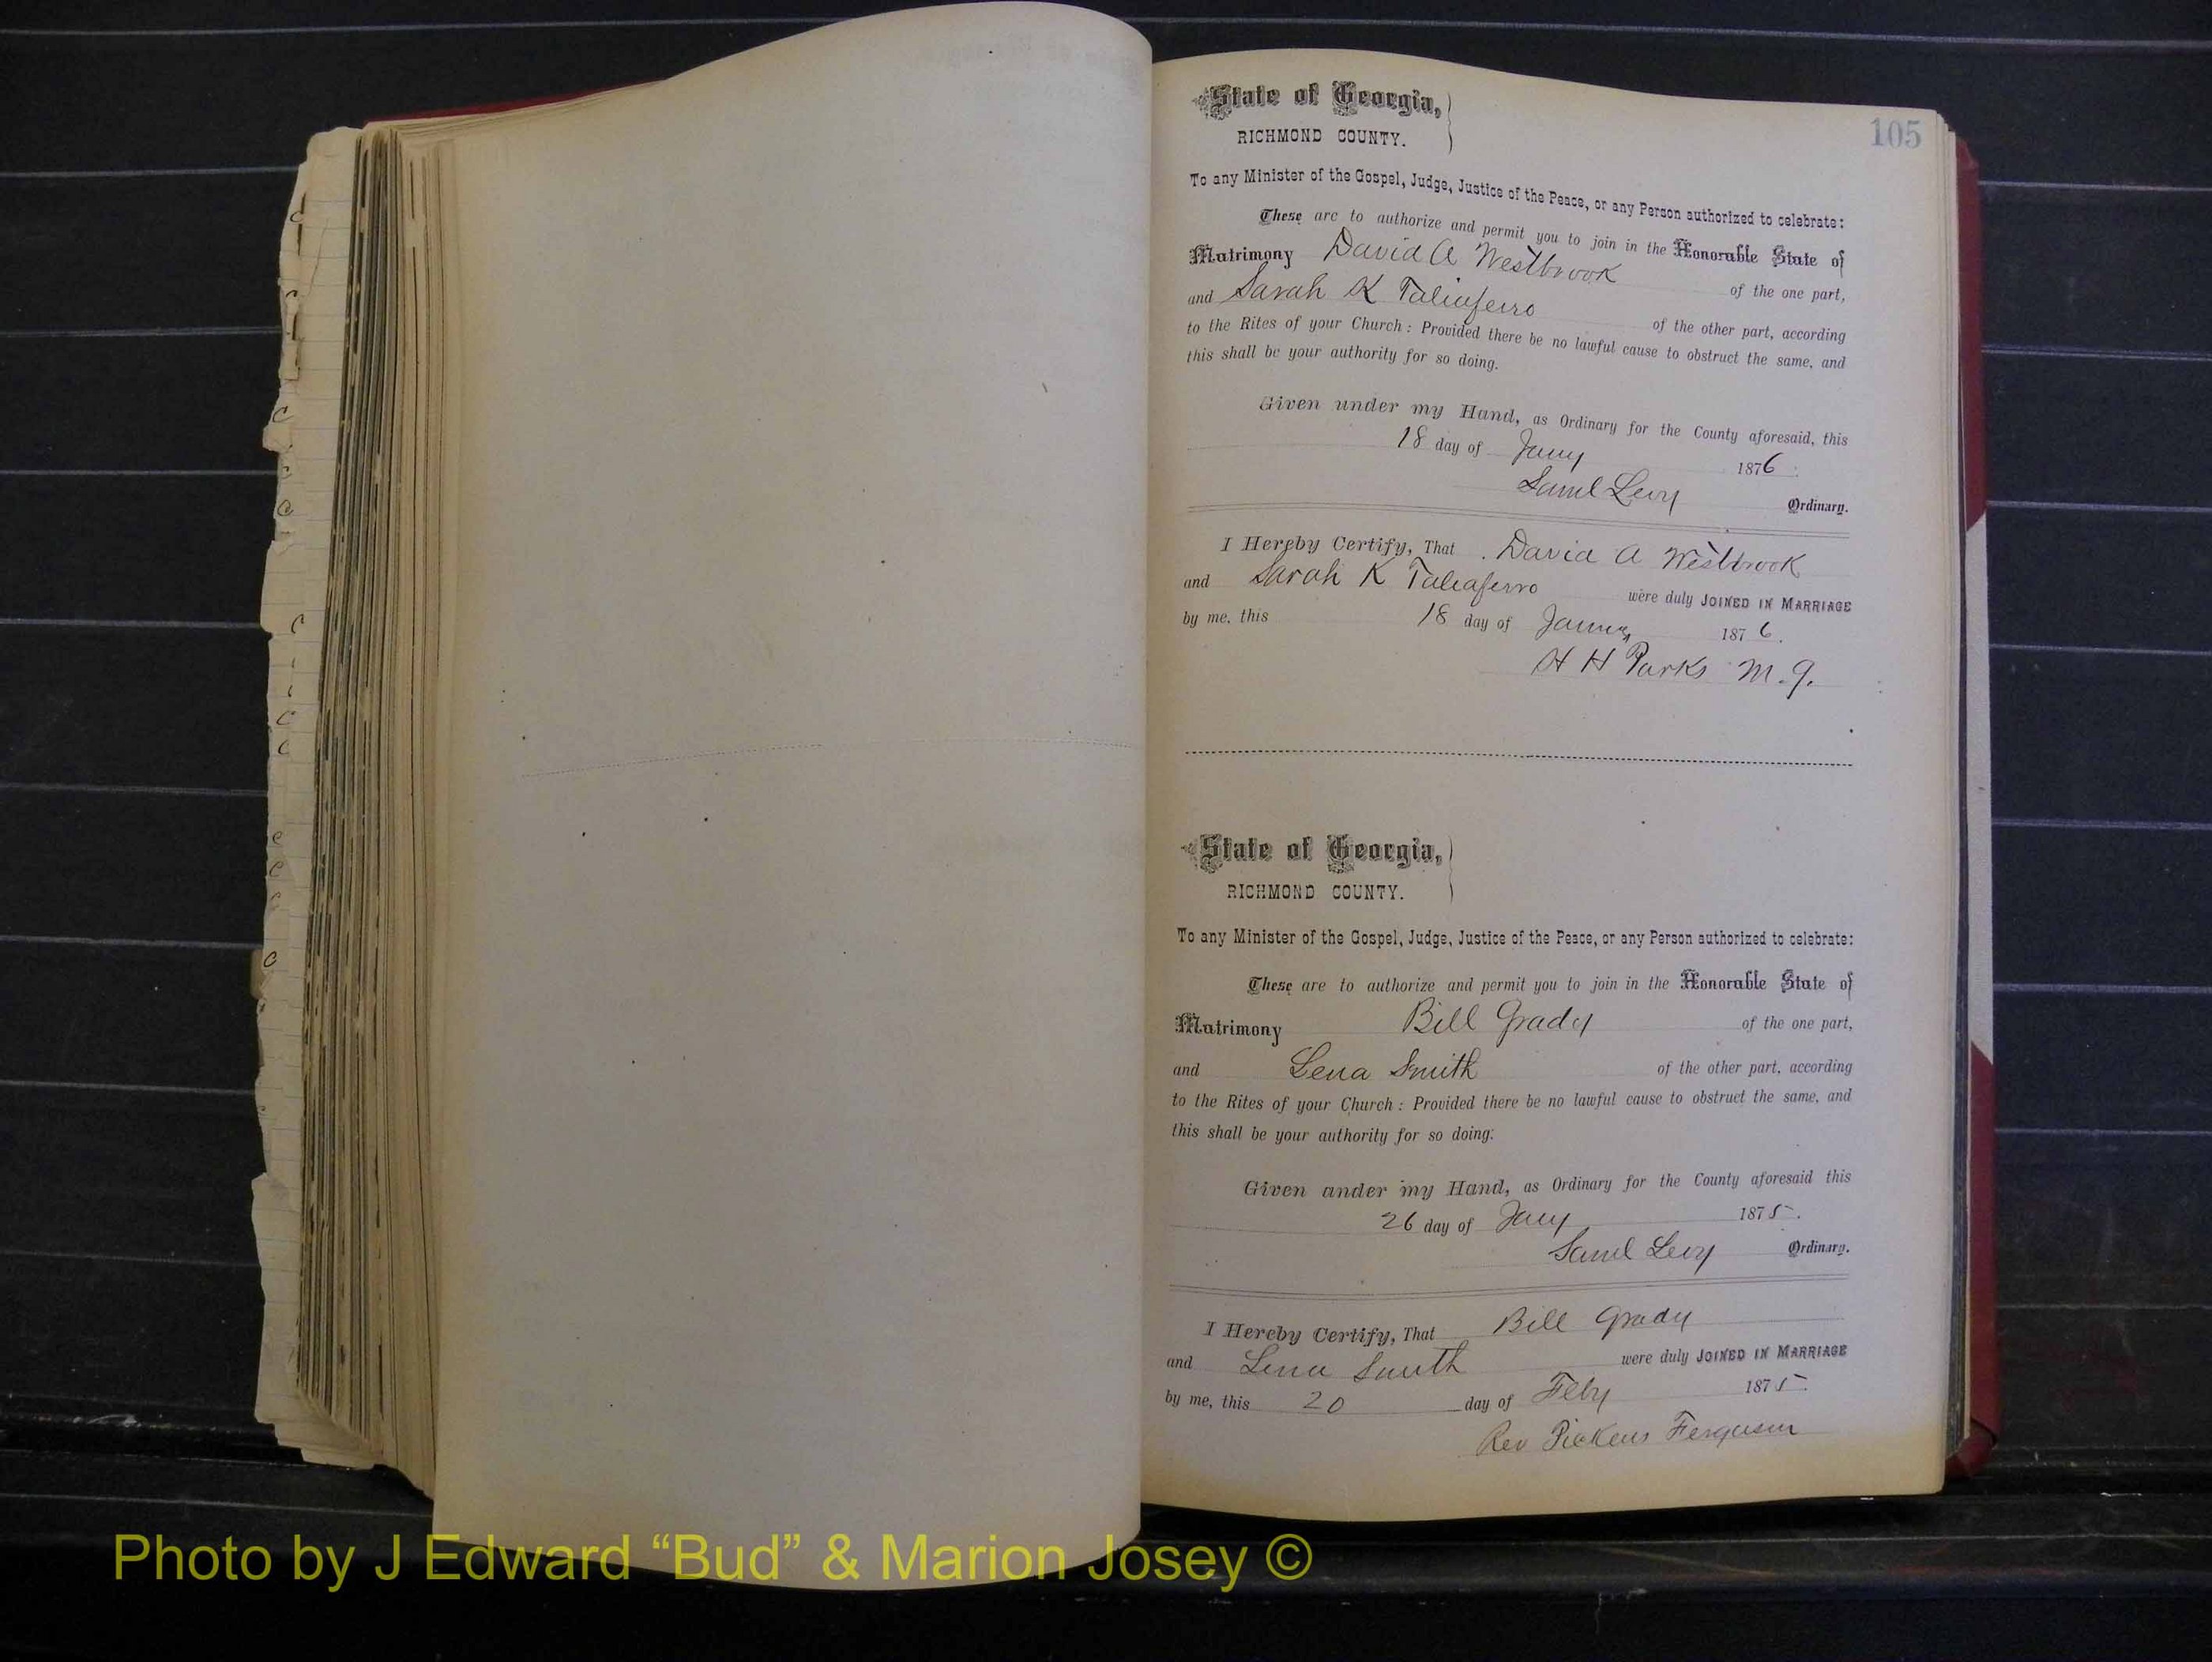 105
State of Georgia,
RICHMOND COUNTY.
To any Minister of the Gospel, Judge, Justice of the Peace, or any Person authorized to celebrate:
These are to authorize and permit you to join in the Honorable State of
Matrimony David A Westbrook of the one part,
and Sarah K Taliaferro of the other part, according
to the Rites of your Church: Provided there be no lawful cause to obstruct the same, and
this shall be your authority for so doing.
Given under my Hand, as Ordinary for the County aforesaid, this
18 day of Jany 1876.
Saml Levy Ordinary.
I Hereby Certify, That David A Westbrook
and Sarah K Taliaferro were duly JOINED IN MARRIAGE
by me, this 18 day of 1876.
H H Parks M. G.
State of Georgia,
RICHMOND COUNTY.
To any Minister of the Gospel, Judge, Justice of the Peace, or any Person authorized to celebrate:
These are to authorize and permit you to join in the Honorable State of
Matrimony Bill Grady of the one part,
and Lena Smith of the other part, according
to the Rites of your Church: Provided there be no lawful cause to obstruct the same, and
this shall be your authority for so doing.
Given under my Hand, as Ordinary for the County aforesaid this
26 day of Jany 1875.
Saml Levy Ordinary.
I Hereby Certify, That Bill Grady
and Lena Smith were duly JOINED IN MARRIAGE
by me, this 20 day of Feby 1875.
Rev Pickens Ferguson
Photo by J Edward “Bud” & Marion Josey ©